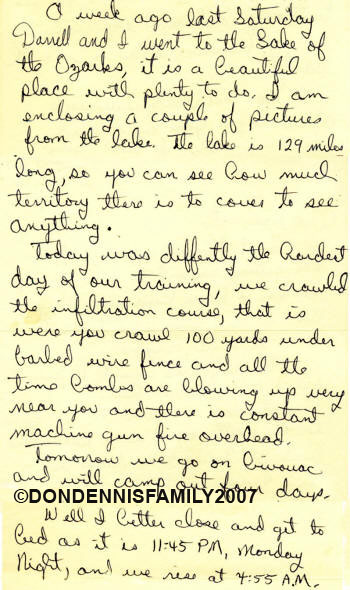 A week ago last Saturday
Darrell and I went to the Lake of
the Ozarks, it is a beautiful
place with plenty to do. I am
enclosing a couple of pictures
from the lake. The lake is 129 miles
long, so you can see how much
territory there is to cover to see
anything.
Today was diffently the hardest
day of our training, we crawled
the infiltration course, that is
were you crawl 100 yards under
barbed wire fence and all the
time bombs are blowing up very
near you and there is constant
machine gun fire overhead.
Tomorrow we go on bivouac
and will camp out four days.
©DONDENNISFAMILY2007
Well I better close and get to
bed as it is 11:45 PM, Monday
Night, and we rise at 4:55 A.M.